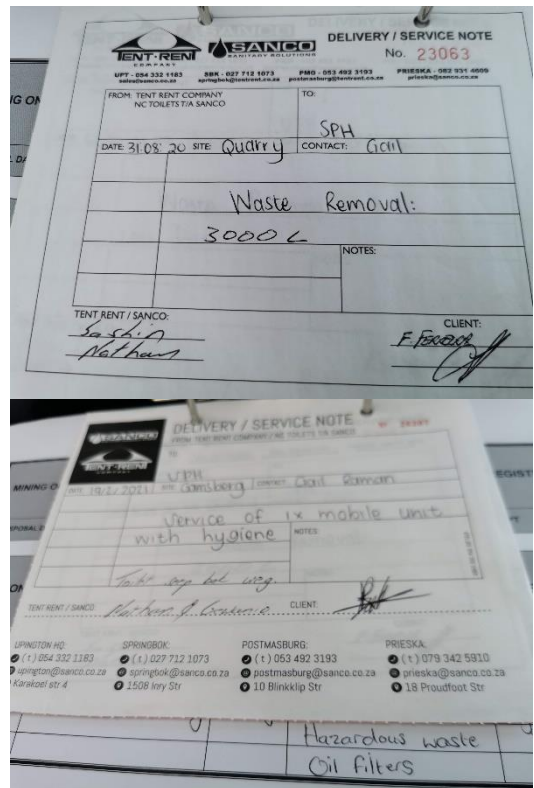 TENT-RENT
COMPANY
SANCO
SANITARY SOLUTIONS
DELIVERY / SERVICE NOTE
No. 23063
UPT - 054 332 1183
SBK - 027 712 1073
PMG - 053 492 3193
PRIESKA - 082 931 4609
sales@sanco.co.za
springbok@tentrent.co.za
postmasburg@tentrent.co.za
prieska@sanco.co.za
FROM: TENT RENT COMPANY
NC TOILETS T/A SANCO
TO:
SPH
DATE: 31.08.20 SITE: Quarry CONTACT: Gail
Waste Removal:
3000 L
NOTES:
TENT RENT / SANCO:
Nathan
CLIENT:
SANCO
TENT-RENT
COMPANY
DELIVERY / SERVICE NOTE
FROM: TENT RENT COMPANY / NC TOILETS T/A SANCO
TO
SPH
DATE 19/2/2021 SITE Gamsberg CONTACT Gail
MINING
Service of 1x mobile unit
with hygiene
NOTES:
TENT RENT / SANCO
Nathan
CLIENT:
UPINGTON HQ:
(t) 054 332 1183
upington@sanco.co.za
Karakoel str 4
SPRINGBOK:
(t) 027 712 1073
springbok@sanco.co.za
1508 Inry Str
POSTMASBURG:
(t) 053 492 3193
postmasburg@sanco.co.za
10 Blinkklip Str
PRIESKA:
(t) 079 342 5910
prieska@sanco.co.za
18 Proudfoot Str
Hazardous waste
Oil filters